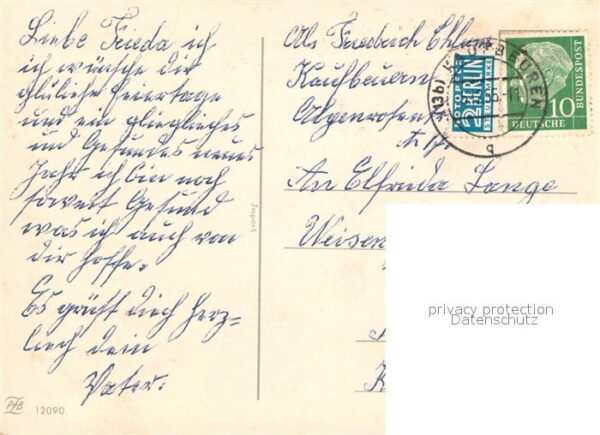 Liebe Frieda ich
ich wünsche dir
glüliche Feiertage
und ein gliegliches
und Gesundes neues
Jahr ich bin noch
soweit Gesund
was ich auch von
dir hoffe.
Es grüßt dich herz=
lich dein
Vater.
PFB
12090
Import
Abs Friedrich
Kaufbeuren
Alpenrosen
An Elfrieda Lange
KAUFBEUREN
b
NOTOPFER
2 BERLIN
STEUERMARKE
10
DEUTSCHE
BUNDESPOST
privacy protection
Datenschutz